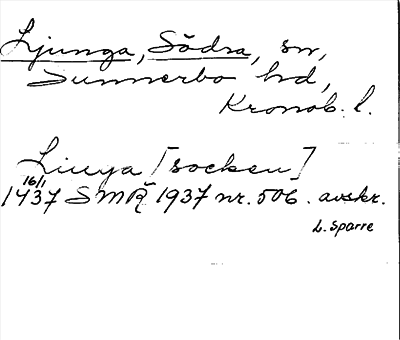 Ljunga, Södra, sn,
Sunnerbo hd,
Kronob. l.
Liuya [socken]
16/1
1437 SMR 1937 nr. 506. avskr.
L. Sparre